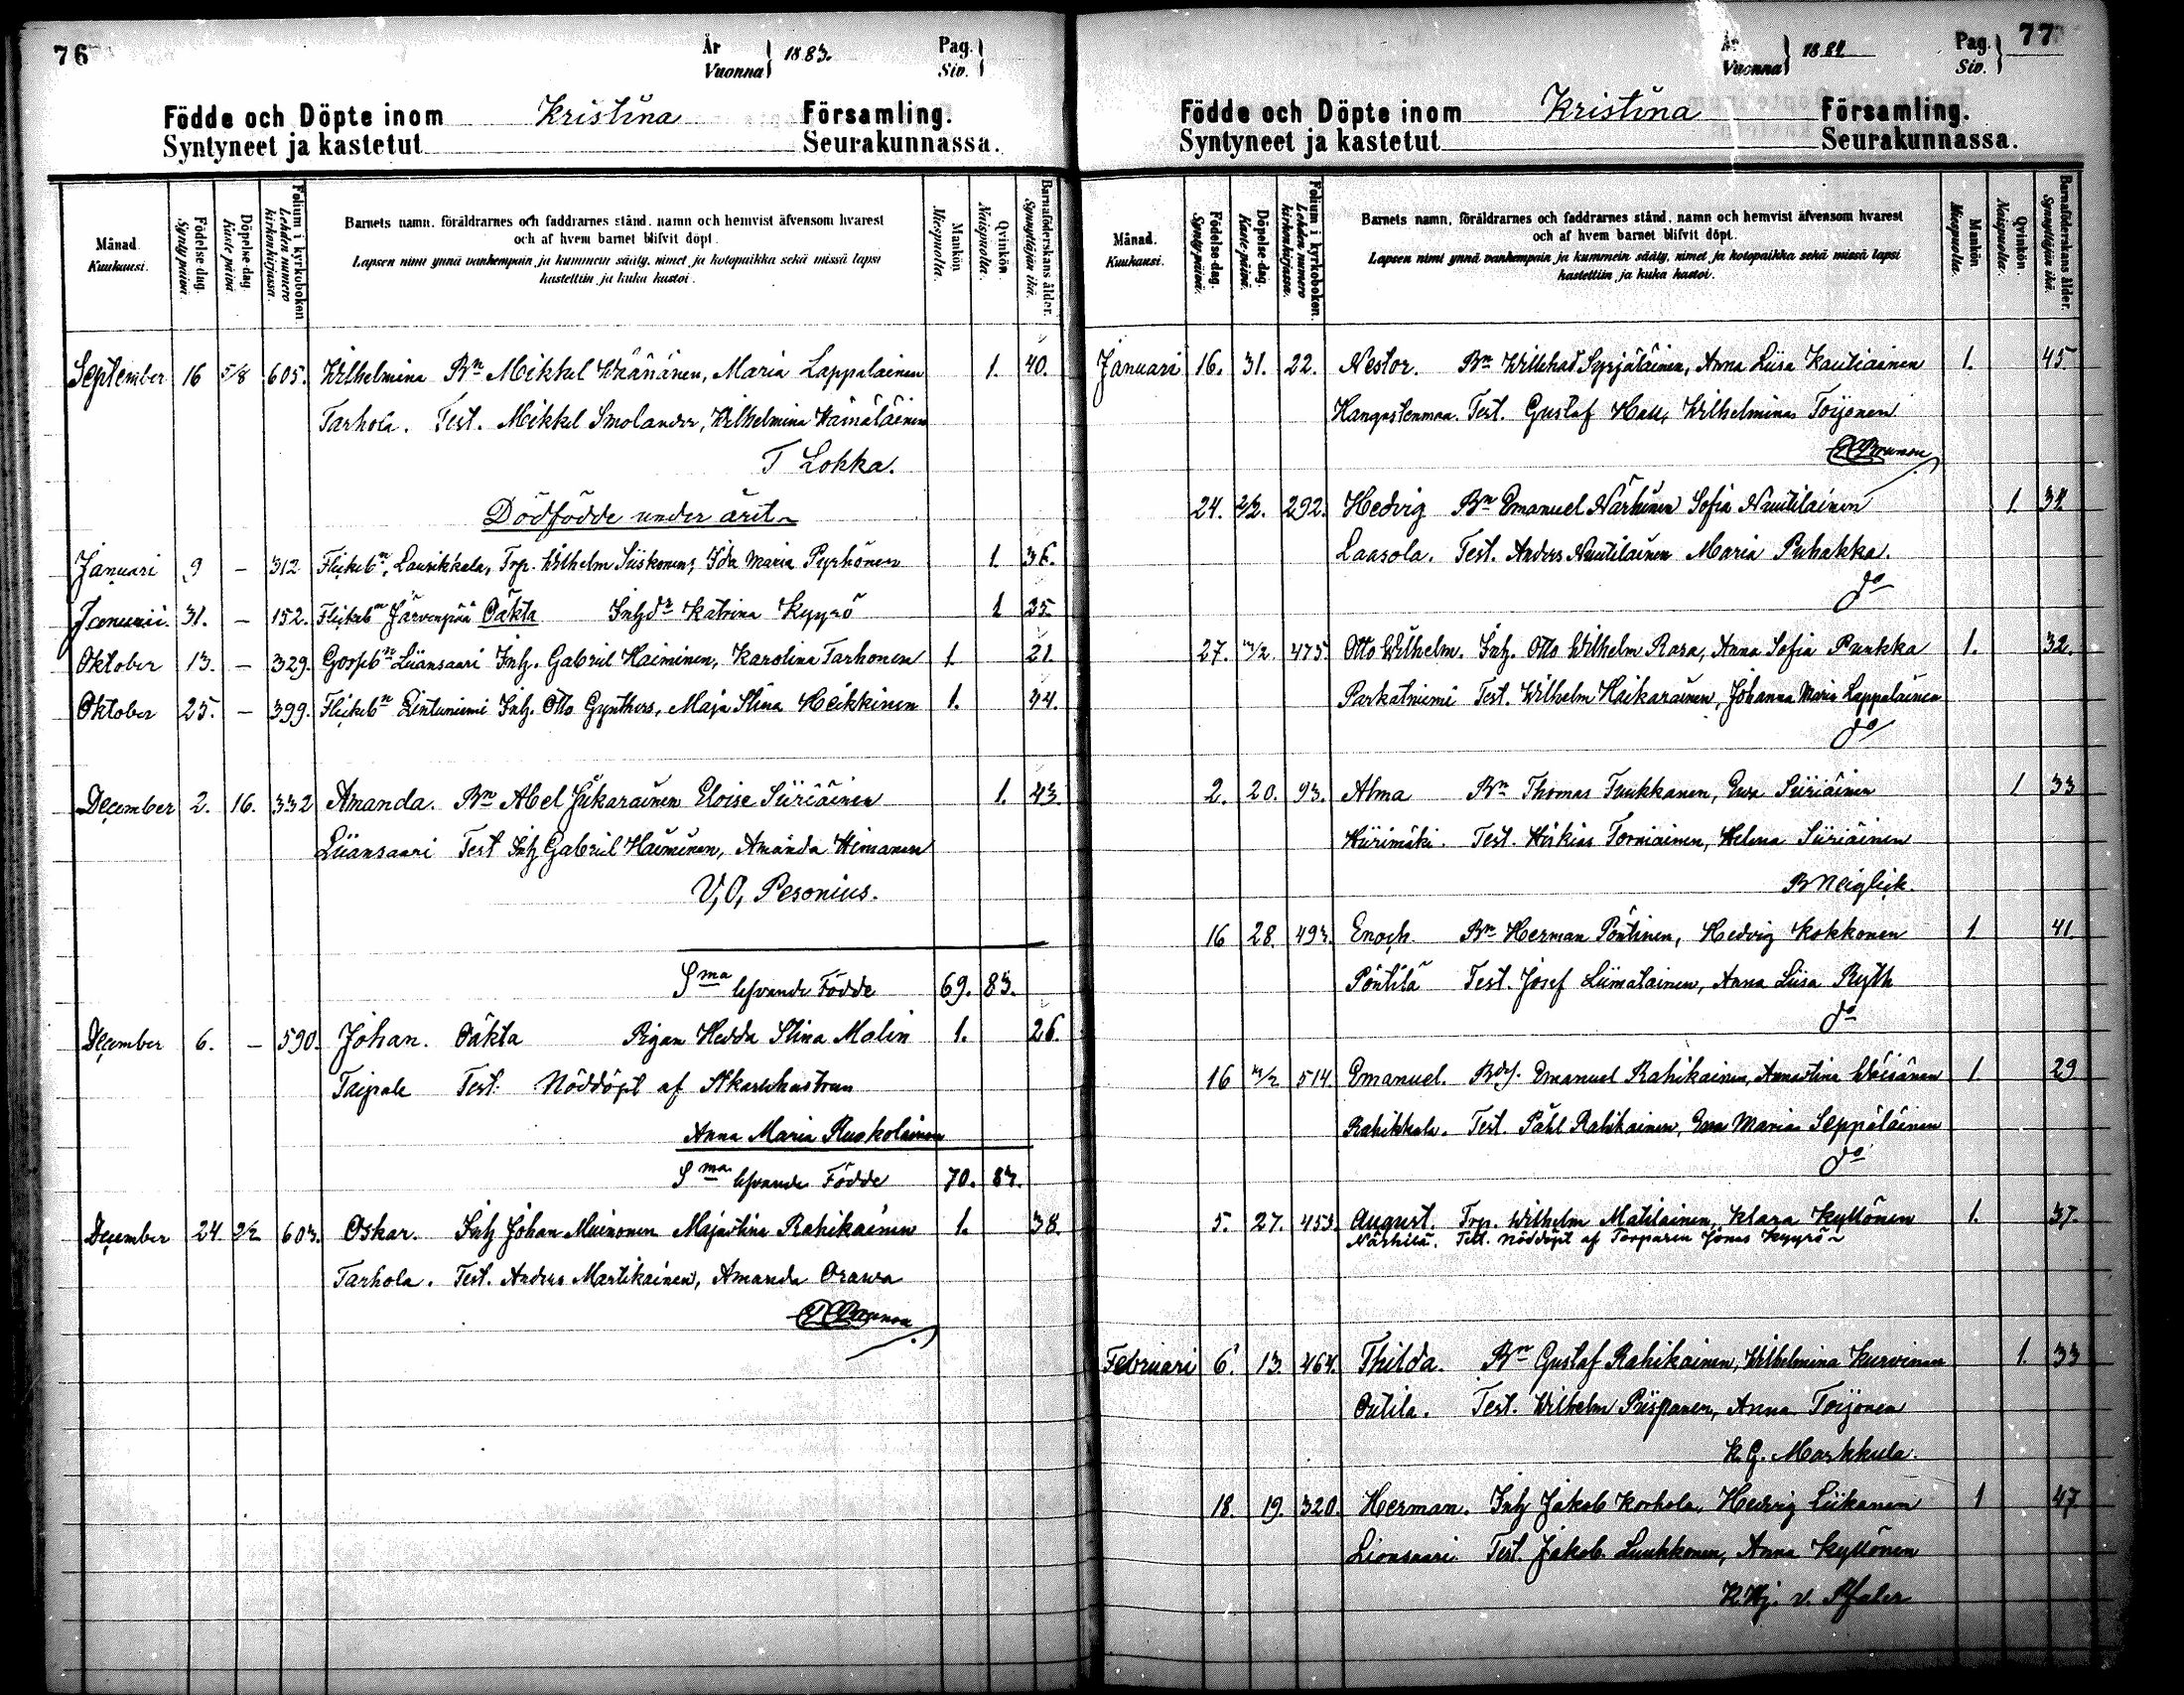 76
År
Vuonna 1883.
Pag.
Siv.
Födde och Döpte inom Kristina Församling.
Syntyneet ja kastetut Seurakunnassa.
Månad. Kuukausi.
Födelse-dag. Syntypäivä.
Döpelse-dag. Kastepäivä
Folium i kyrkoboken. Lehden numero kirkonkirjassa.
Barnets namn, föräldrarnes och faddrarnes stånd, namn och hemvist äfvensom hvarest
och af hvem barnet blifvit döpt.
Lapsen nimi ynnä vanhempain ja kummein sääty, nimet ja kotopaikka sekä missä lapsi
kastettiin ja kuka kastoi.
Mankön Miespuolta.
Qvinkön. Naispuolta.
Barnaföderskans ålder. Synnyttäjän ikä.
September 16 5/8 605. Wilhelmina Bn Mikkel Wäänänen, Maria Lappalainen 1. 40.
Tarhola. Test. Mikkel Smolander, Wilhelmina Hämäläinen
T Lokka.
Dödfödde under året
Januari 9 – 312 Flickebn, Laurikkala, Trp. Wilhelm Siiskonen, Ida Maria Pyrhönen 1. 36.
Januari. 31. – 152. Flickebn Järvenpää Oäkta Inhds Katrina Kyyrö 1 25.
Oktober 13. – 329. Gossebn Liiansaari Inh. Gabriel Haiminen, Karolina Tarhonen 1. 21.
Oktober 25. – 399. Flickebn Lintuniemi Inh. Otto Gynthers, Maja Stina Heikkinen 1. 44.
December 2. 16. 332 Amanda. Bn Abel Jukarainen Eloise Siiriäinen 1. 43.
Liiansaari Test Inh Gabriel Haiminen, Amanda Himanen
V, O, Pesonius.
Sma lefvande Födde 69. 83.
December 6. – 590. Johan. Oäkta Pigan Hedda Stina Malin 1. 26.
Taipale Test. Nöddöpt af
Anna Maria Ruskolainen
Sma lefvande Födde 70. 83.
December 24 2/2 603. Oskar. Inh Johan Muinonen Majastina Rahikainen 1. 38.
Tarhola. Test. Anders Martikainen, Amanda Orawa
77
År
Vuonna 1884
Pag.
Siv.
Födde och Döpte inom Kristina Församling.
Syntyneet ja kastetut Seurakunnassa.
Månad. Kuukausi.
Födelse-dag. Syntypäivä.
Döpelse-dag. Kastepäivä.
Folium i kyrkoboken. Lehden numero kirkonkirjassa.
Barnets namn, föräldrarnes och faddrarnes stånd, namn och hemvist äfvensom hvarest
och af hvem barnet blifvit döpt.
Lapsen nimi ynnä vanhempain ja kummein sääty, nimet ja kotopaikka sekä missä lapsi
kastettiin ja kuka kastoi.
Mankön Miespuolta.
Qvinkön. Naispuolta.
Barnaföderskans ålder. Synnyttäjän ikä.
Januari 16. 31. 22. Nestor. Bn Willehad Syrjäläinen, Anna Liisa Kautiainen 1. 45.
Kangastenmaa. Test. Gustaf Hall, Wilhelmina Toijonen
24. 2/2. 292. Hedvig Bn Emanuel Närhinen Sofia Nuutilainen 1. 34
Laasola. Test. Anders Nuutilainen Maria Puhakka.
do
27. 475 Otto Wilhelm. Inh. Otto Wilhelm Rasa, Anna Sofia Punkka 1. 32.
Parkatniemi Test. Wilhelm Haikarainen, Johanna Maria Lappalainen
do
2. 20. 93. Alma Bn Thomas Tuukkanen, Eva Siiriäinen 1 33
Hiirimäki. Test. Hiskias Torniainen, Helena Siiriäinen
B Neiglick.
16 28. 493. Enoch. Bn Herman Pöntinen, Hedvig Kokkonen 1. 41.
Pöntilä Test. Josef Liimatainen, Anna Liisa Ryth
do
16 514 Emanuel. Bds. Emanuel Rahikainen, Annastina Väisänen 1 29
Rahikkala. Test. Påhl Rahikainen, Eva Maria Seppäläinen
do
5. 27. 453 August. Trp. Wilhelm Matilainen, Klara Kyllönen 1. 37.
Närhilä. Test. Nöddöpt af Torparen Jonas Kyyrö
Februari 6. 13. 464. Thilda. Bn Gustaf Rahikainen, Wilhelmina Kurvinen 1. 33
Outila. Test. Wilhelm Piispanen, Anna Toijonen
K. G. Markkula.
18. 19. 320. Herman. Inh Jakob Korhola, Hedvig Liikanen 1 47
Liansaari Test. Jakob Luukkonen, Anna Kyllönen
K. Hj. v. Pfaler